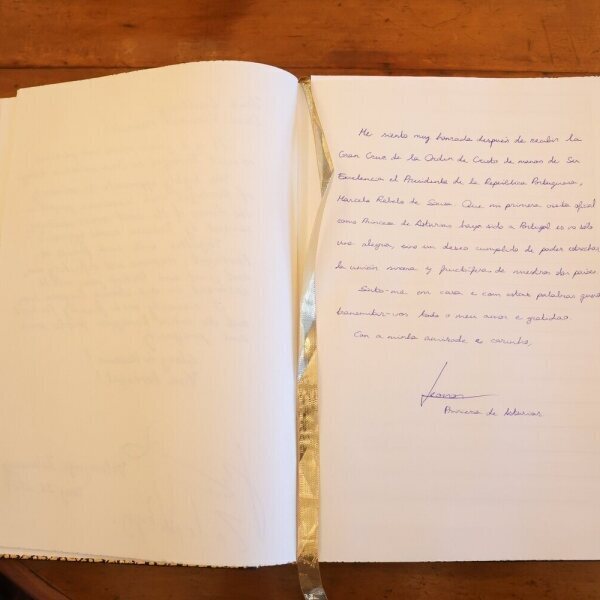 Me siento muy honrada después de recibir la
Gran Cruz de la Orden de Cristo de manos de Ser
Excelencia el Presidente de la República Portuguesa,
Marcelo Rebelo de Sousa. Que mi primera visita oficial
como Princesa de Asturias haya sido a Portugal es no sólo
una alegría, sino un deseo cumplido de poder estrechar
la unión sincera y fructífera de nuestros dos países.
Sinto-me em casa e com estas palavras
transmitir-vos todo o meu amor e gratidão.
Con a minha amizade e carinho,
Leonor
Princesa de Asturias